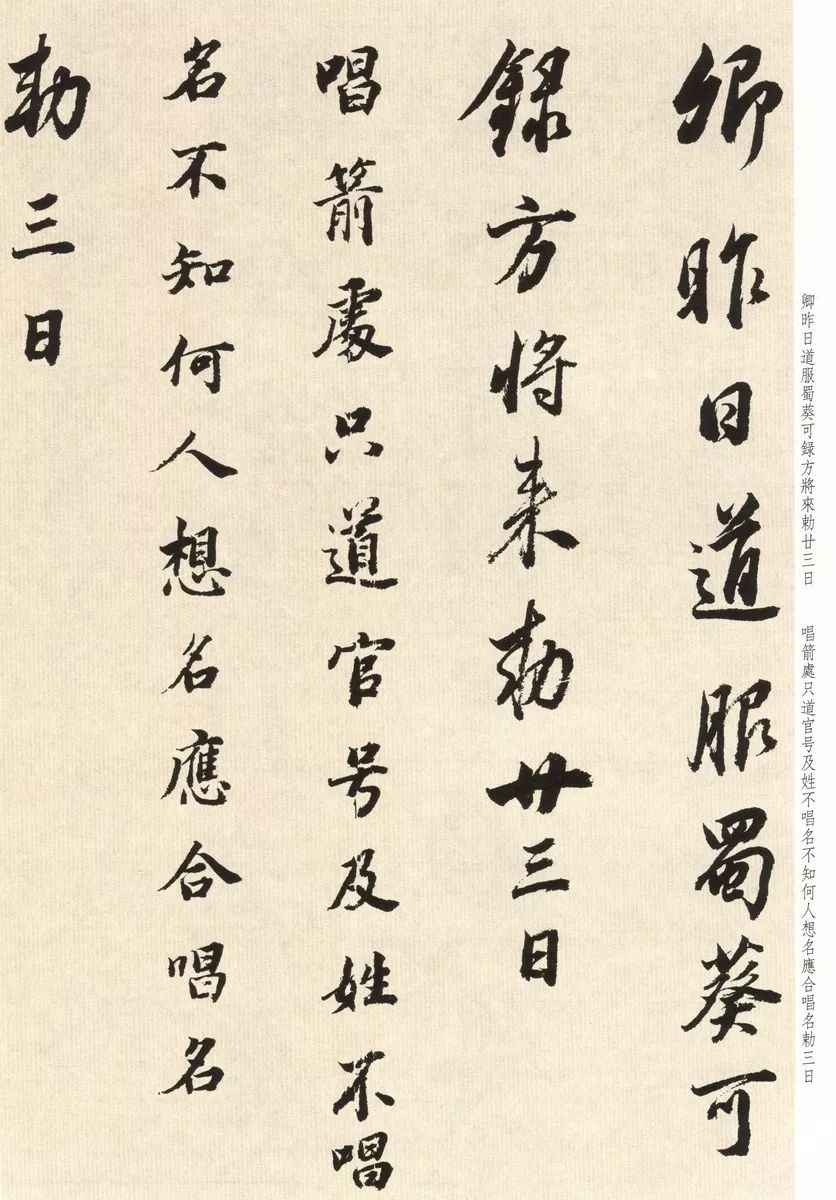 卿昨日道服蜀葵可
録方将来勅廿三日
唱箭處只道官号及姓不唱
名不知何人想名應合唱名
勅三日
卿昨日道服蜀葵可録方將來勅廿三日
唱箭處只道官号及姓不唱名不知何人想名應合唱名勅三日